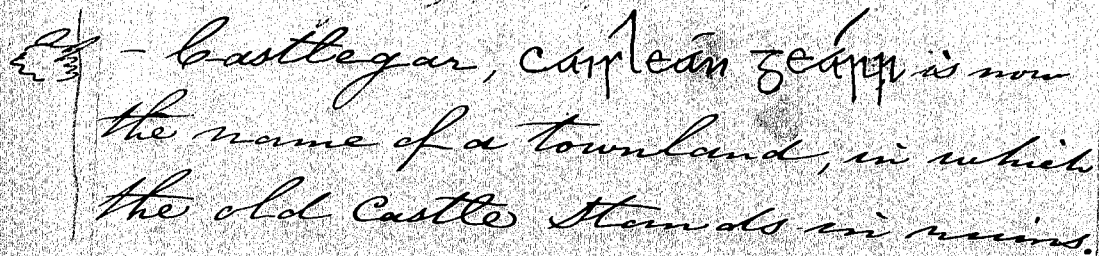 - Castlegar, caisleán geárr is now
the name of a townland, in which
the old Castle stands in ruins.